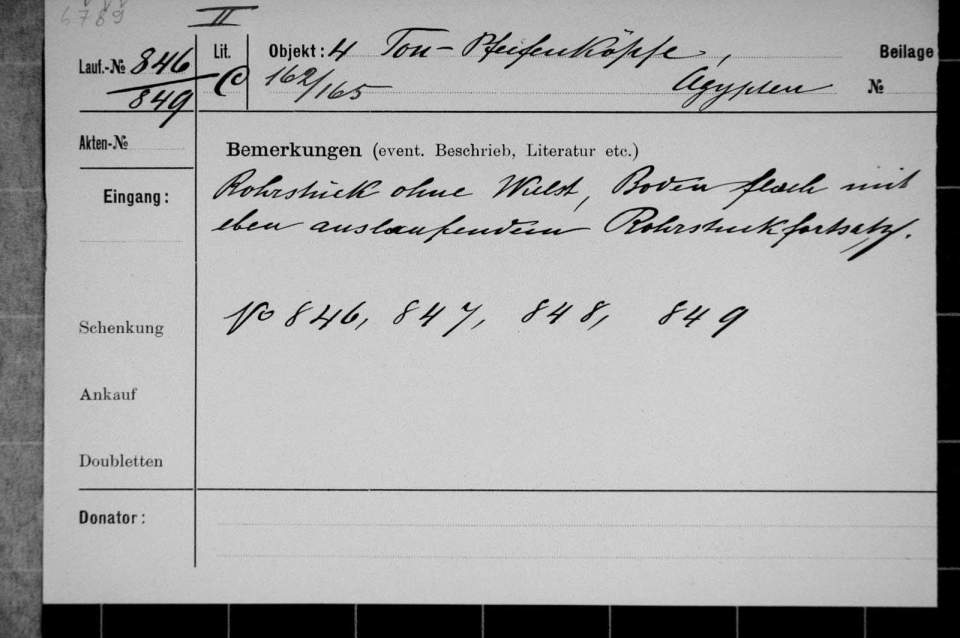 6789
II
Lauf.-№ 846
849
Lit.
C
Objekt: 4 Ton-Pfeifenköpfe,
162/165
Ägypten
Beilage
№
Akten-№
Bemerkungen (event. Beschrieb, Literatur etc.)
Eingang:
Rohrstück ohne Wulst, Boden flach mit
eben auslaufendem Rohrstuckfortsatz.
No 846, 847, 848, 849
Schenkung
Ankauf
Doubletten
Donator: